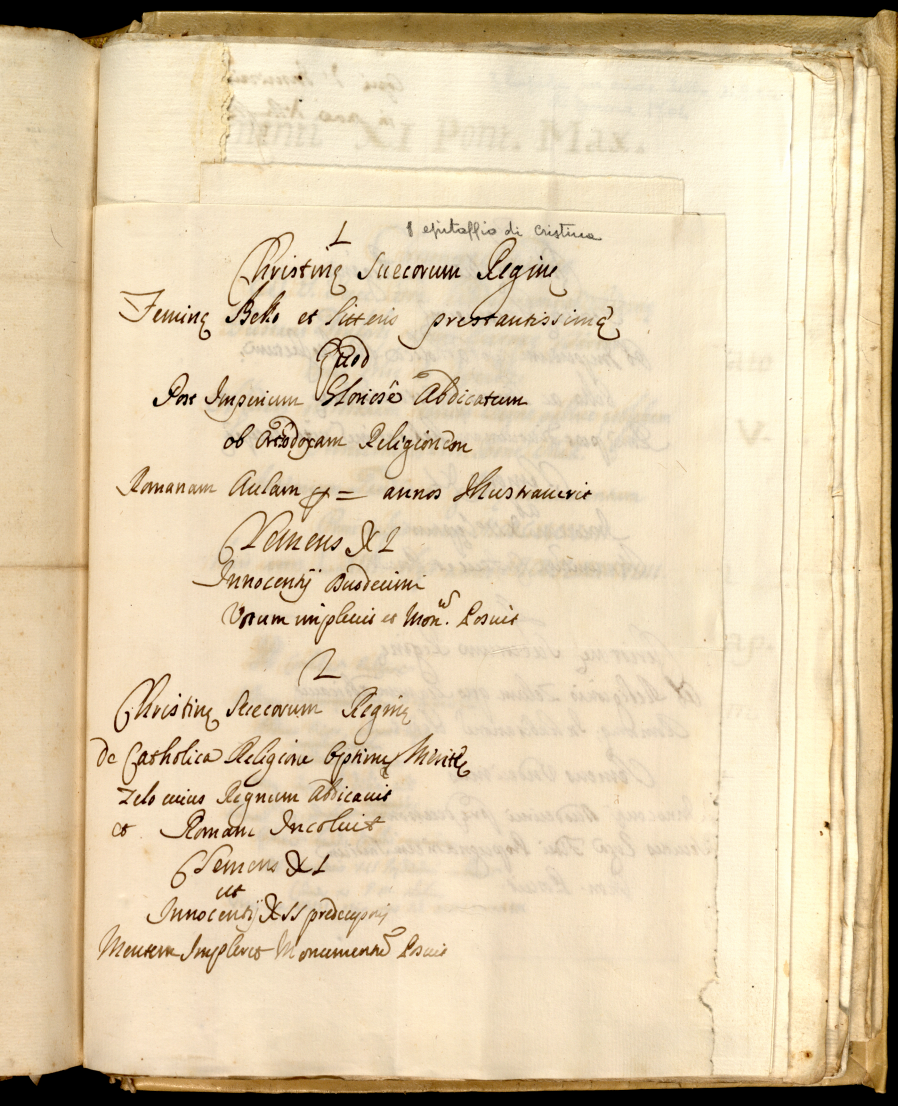 epitaffio di Cristina
1
Christinę Suecorum Reginę
Feminę Bello et Litteris prestantissimę
Quod
Post Imperium Gloriosè Abdicatum
ob Ortodoxam Religionem
Romanam Aulam = annos Illustraverit
Clemens XI
Innocentij Duodecimi
Votum implevit et Mon.tũ Posuit
2
Christinę Suecorum Reginę
de Catholica Religione Optimè Meritę
Zelo cuius Regnum Abdicavit
et Romam Incoluit
Clemens XI
ut
Innocentij XII predecessoris
Mentem Impleret Monumentũ Posuit